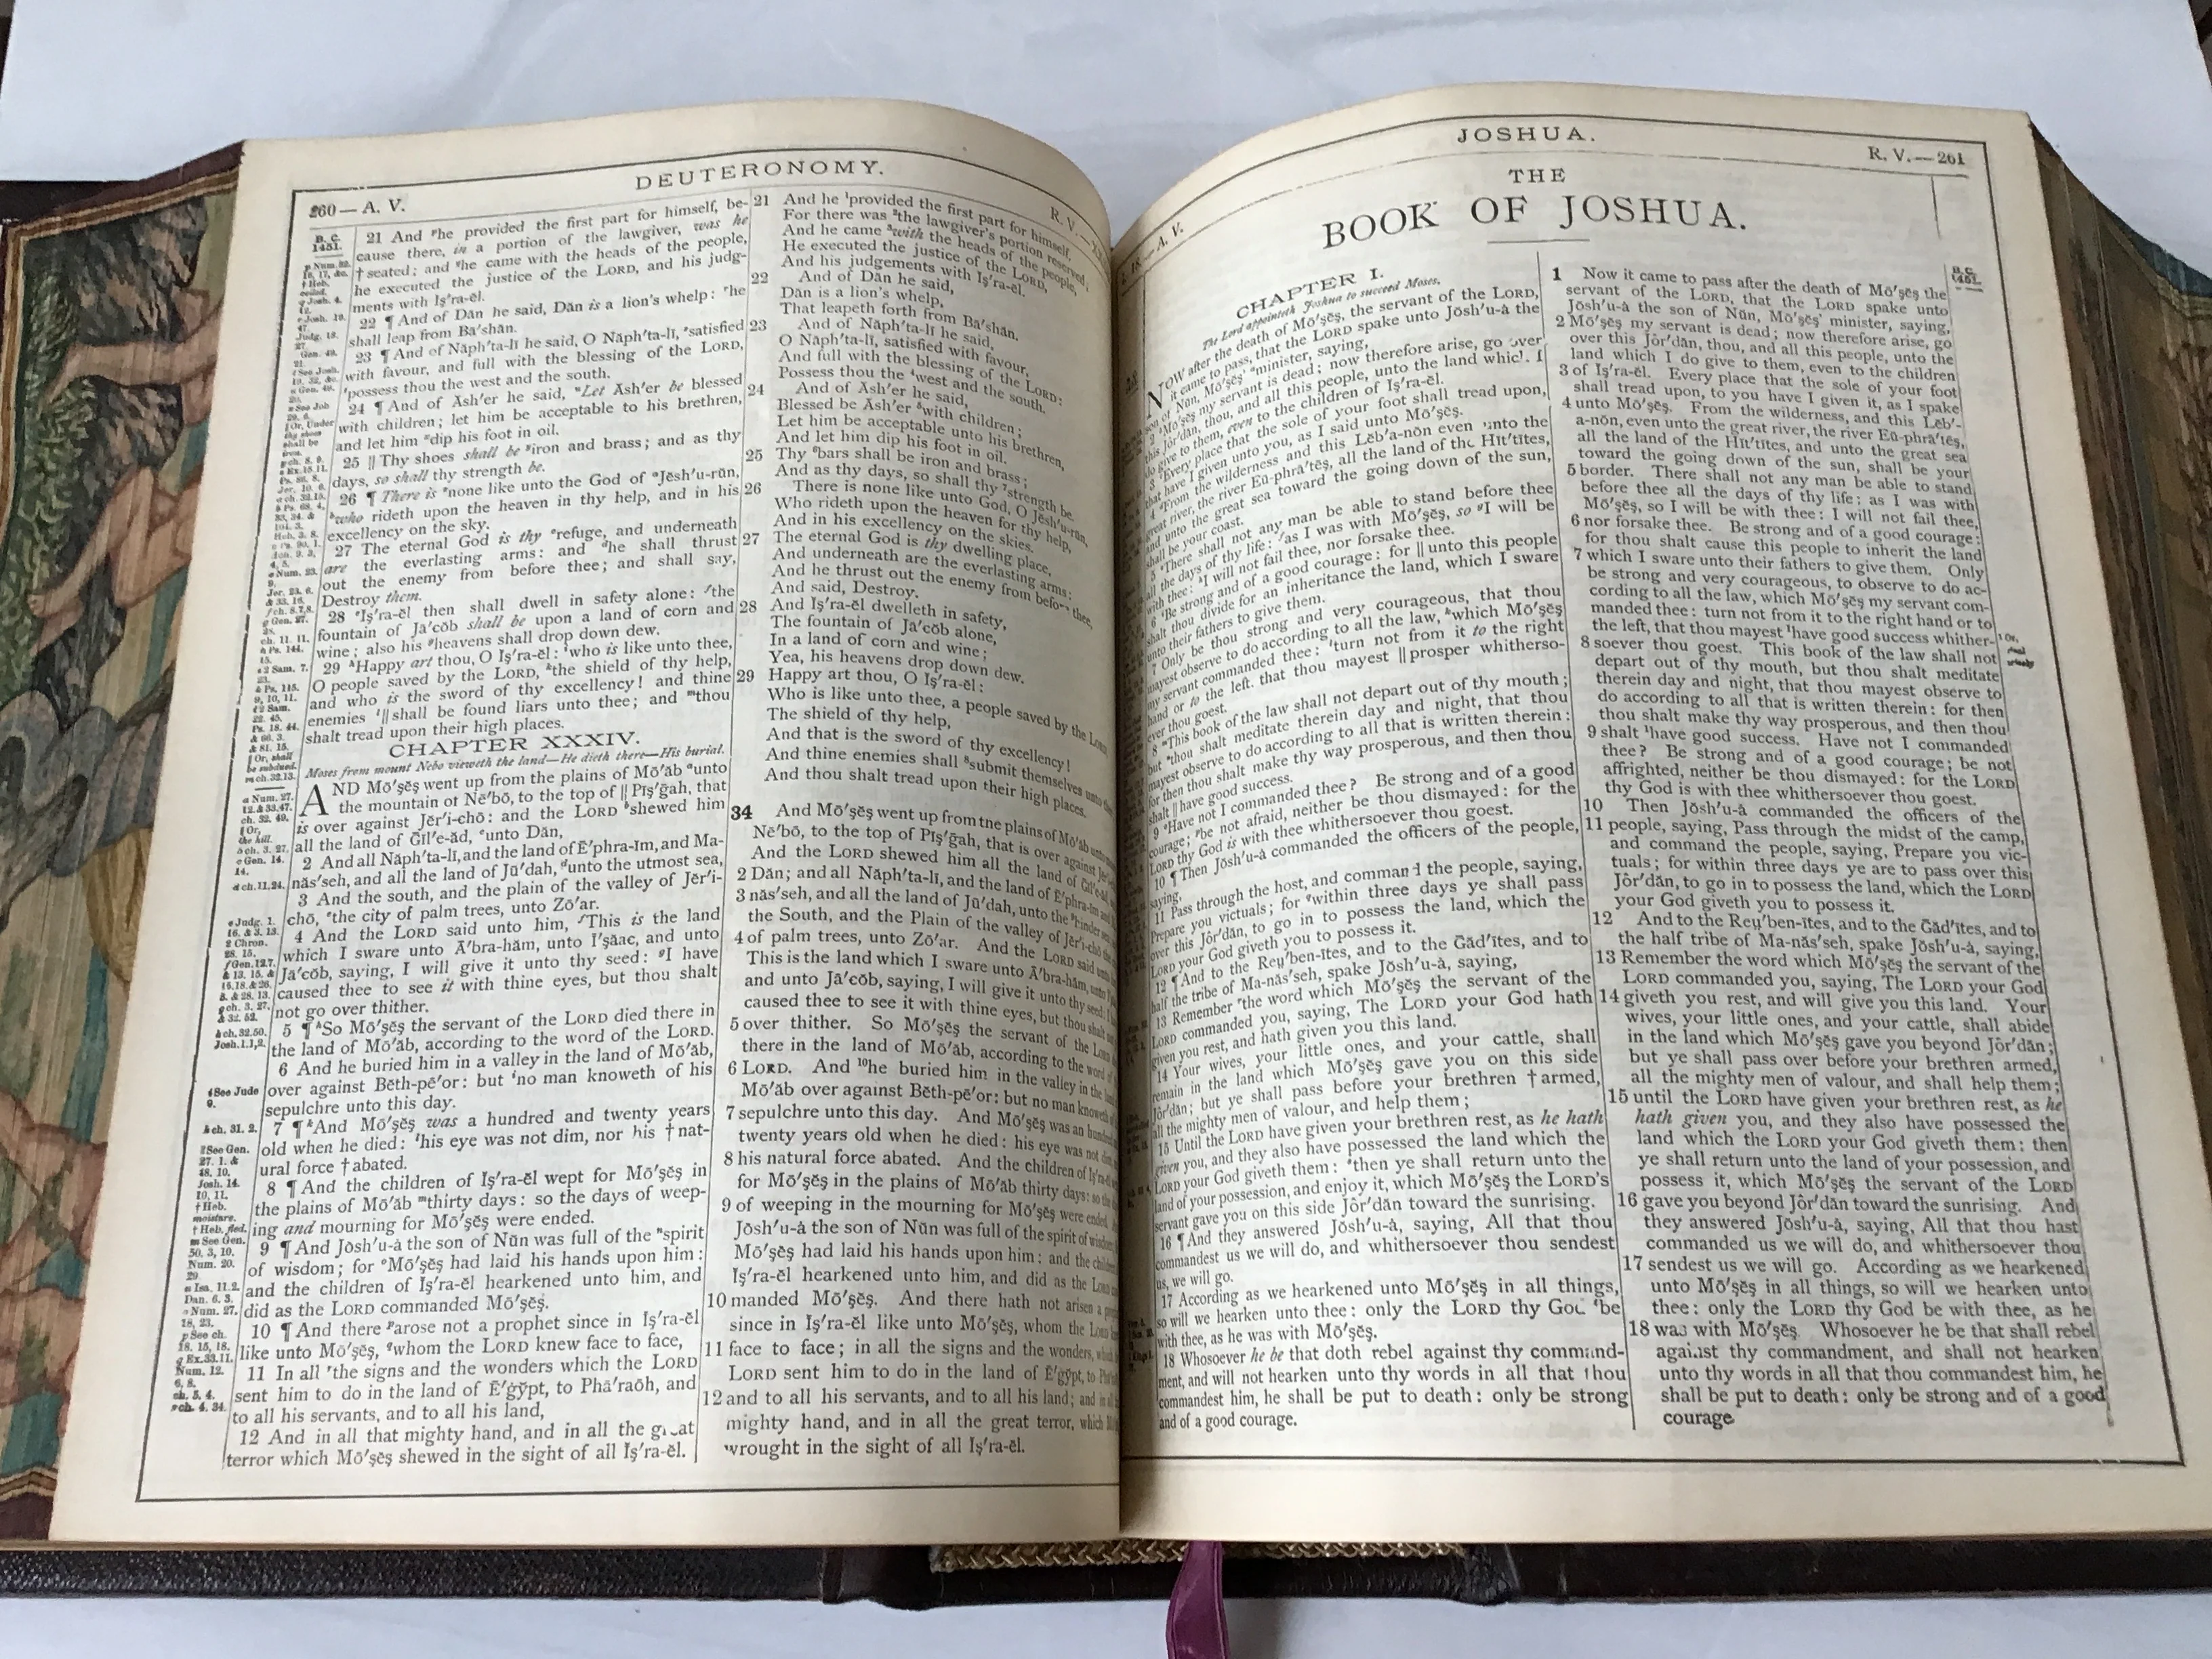 DEUTERONOMY.
260 — A. V.
R. V.
B. C.
1451.
21 And he provided the first part for himself, be-
cause there, in a portion of the lawgiver, was he
† seated; and he came with the heads of the people,
he executed the justice of the LORD, and his judg-
ments with Iş′ra-ĕl.
22 ¶ And of Dăn he said, Dăn is a lion's whelp: he
shall leap from Bā′shăn.
23 ¶ And of Năph′ta-lī he said, O Năph′ta-lī, satisfied
with favour, and full with the blessing of the LORD,
possess thou the west and the south.
24 ¶ And of Ăsh′er he said, Let Ăsh′er be blessed
with children; let him be acceptable to his brethren,
and let him dip his foot in oil.
25 || Thy shoes shall be iron and brass; and as thy
days, so shall thy strength be.
26 ¶ There is none like unto the God of Jĕsh′u-rŭn,
who rideth upon the heaven in thy help, and in his
excellency on the sky.
27 The eternal God is thy refuge, and underneath
are the everlasting arms: and he shall thrust
out the enemy from before thee; and shall say,
Destroy them.
28 Iş′ra-ĕl then shall dwell in safety alone: the
fountain of Jā′cŏb shall be upon a land of corn and
wine; also his heavens shall drop down dew.
29 Happy art thou, O Iş′ra-ĕl: who is like unto thee,
O people saved by the LORD, the shield of thy help,
and who is the sword of thy excellency! and thine
enemies || shall be found liars unto thee; and thou
shalt tread upon their high places.
CHAPTER XXXIV.
Moses from mount Nebo vieweth the land—He dieth there—His burial.
AND Mō′şĕş went up from the plains of Mō′ăb unto
the mountain of Nē′bō, to the top of || Pĭş′ḡah, that
is over against Jĕr′i-chō: and the LORD shewed him
all the land of Ḡĭl′e-ăd, unto Dăn,
2 And all Năph′ta-lī, and the land of Ē′phra-ĭm, and Ma-
năs′seh, and all the land of Jū′dah, unto the utmost sea,
3 And the south, and the plain of the valley of Jĕr′i-
chō, the city of palm trees, unto Zō′ar.
4 And the LORD said unto him, This is the land
which I sware unto Ā′bra-hăm, unto I′şăac, and unto
Jā′cŏb, saying, I will give it unto thy seed: I have
caused thee to see it with thine eyes, but thou shalt
not go over thither.
5 ¶ So Mō′şĕş the servant of the LORD died there in
the land of Mō′ăb, according to the word of the LORD.
6 And he buried him in a valley in the land of Mō′ăb,
over against Bĕth-pē′or: but no man knoweth of his
sepulchre unto this day.
7 ¶ And Mō′şĕş was a hundred and twenty years
old when he died: his eye was not dim, nor his † nat-
ural force † abated.
8 ¶ And the children of Iş′ra-ĕl wept for Mō′şĕş in
the plains of Mō′ăb thirty days: so the days of weep-
ing and mourning for Mō′şĕş were ended.
9 ¶ And Jŏsh′u-à the son of Nŭn was full of the spirit
of wisdom; for Mō′şĕş had laid his hands upon him:
and the children of Iş′ra-ĕl hearkened unto him, and
did as the LORD commanded Mō′şĕş.
10 ¶ And there arose not a prophet since in Iş′ra-ĕl
like unto Mō′şĕş, whom the LORD knew face to face,
11 In all the signs and the wonders which the LORD
sent him to do in the land of Ē′ġy̆pt, to Phā′raōh, and
to all his servants, and to all his land,
12 And in all that mighty hand, and in all the great
terror which Mō′şĕş shewed in the sight of all Iş′ra-ĕl.
21 And he provided the first part for himself,
For there was the lawgiver's portion reserved;
And he came with the heads of the people,
He executed the justice of the LORD,
And his judgements with Iş′ra-ĕl.
22 And of Dăn he said,
Dăn is a lion's whelp,
That leapeth forth from Bā′shăn.
23 And of Năph′ta-lī he said,
O Năph′ta-lī, satisfied with favour,
And full with the blessing of the LORD:
Possess thou the west and the south.
24 And of Ăsh′er he said,
Blessed be Ăsh′er with children;
Let him be acceptable unto his brethren,
And let him dip his foot in oil.
25 Thy bars shall be iron and brass;
And as thy days, so shall thy strength be.
26 There is none like unto God, O Jĕsh′u-rŭn,
Who rideth upon the heaven for thy help,
And in his excellency on the skies.
27 The eternal God is thy dwelling place,
And underneath are the everlasting arms:
And he thrust out the enemy from before thee,
And said, Destroy.
28 And Iş′ra-ĕl dwelleth in safety,
The fountain of Jā′cŏb alone,
In a land of corn and wine;
Yea, his heavens drop down dew.
29 Happy art thou, O Iş′ra-ĕl:
Who is like unto thee, a people saved by the LORD,
The shield of thy help,
And that is the sword of thy excellency!
And thine enemies shall submit themselves unto
And thou shalt tread upon their high places.
34 And Mō′şĕş went up from the plains of Mō′ăb unto
Nē′bō, to the top of Pĭş′ḡah, that is over against
And the LORD shewed him all the land of Ḡĭl′e-ăd,
2 Dăn; and all Năph′ta-lī, and the land of Ē′phra-ĭm and
3 năs′seh, and all the land of Jū′dah, unto the hinder
the South, and the Plain of the valley of Jĕr′i-chō the
4 of palm trees, unto Zō′ar. And the LORD said unto
This is the land which I sware unto Ā′bra-hăm, unto
and unto Jā′cŏb, saying, I will give it unto thy seed:
caused thee to see it with thine eyes, but thou shalt
5 over thither. So Mō′şĕş the servant of the LORD
there in the land of Mō′ăb, according to the word of
6 LORD. And he buried him in the valley in the land
Mō′ăb over against Bĕth-pē′or: but no man knoweth of
7 sepulchre unto this day. And Mō′şĕş was an hundred
twenty years old when he died: his eye was not dim,
8 his natural force abated. And the children of Iş′ra-ĕl
for Mō′şĕş in the plains of Mō′ăb thirty days: so the
9 of weeping in the mourning for Mō′şĕş were ended.
Jŏsh′u-à the son of Nŭn was full of the spirit of wisdom;
Mō′şĕş had laid his hands upon him: and the
Iş′ra-ĕl hearkened unto him, and did as the LORD
10 manded Mō′şĕş. And there hath not arisen a
since in Iş′ra-ĕl like unto Mō′şĕş, whom the LORD
11 face to face; in all the signs and the wonders,
LORD sent him to do in the land of Ē′ġy̆pt, to
12 and to all his servants, and to all his land; and in
mighty hand, and in all the great terror, which
wrought in the sight of all Iş′ra-ĕl.
JOSHUA.
A. V.
R. V.—261
THE
BOOK OF JOSHUA.
CHAPTER I.
The Lord appointeth Joshua to succeed Moses.
NOW after the death of Mō′şĕş, the servant of the LORD,
it came to pass, that the LORD spake unto Jŏsh′u-à the
son of Nŭn, Mō′şĕş' minister, saying,
2 Mō′şĕş my servant is dead; now therefore arise, go over
this Jôr′dăn, thou, and all this people, unto the land which I
do give to them, even to the children of Iş′ra-ĕl.
3 Every place that the sole of your foot shall tread upon,
that have I given unto you, as I said unto Mō′şĕş.
4 From the wilderness and this Lĕb′a-nŏn even unto the
great river, the river Eū-phrā′tēş, all the land of the Hĭt′tītes,
and unto the great sea toward the going down of the sun,
shall be your coast.
5 There shall not any man be able to stand before thee
all the days of thy life: as I was with Mō′şĕş, so I will be
with thee: I will not fail thee, nor forsake thee.
6 Be strong and of a good courage: for || unto this people
shalt thou divide for an inheritance the land, which I sware
unto their fathers to give them.
7 Only be thou strong and very courageous, that thou
mayest observe to do according to all the law, which Mō′şĕş
my servant commanded thee: turn not from it to the right
hand or to the left, that thou mayest || prosper whitherso-
ever thou goest.
8 This book of the law shall not depart out of thy mouth;
but thou shalt meditate therein day and night, that thou
mayest observe to do according to all that is written therein:
for then thou shalt make thy way prosperous, and then thou
shalt || have good success.
9 Have not I commanded thee? Be strong and of a good
courage; be not afraid, neither be thou dismayed: for the
LORD thy God is with thee whithersoever thou goest.
10 ¶ Then Jŏsh′u-à commanded the officers of the people,
saying,
11 Pass through the host, and command the people, saying,
Prepare you victuals; for within three days ye shall pass
over this Jôr′dăn, to go in to possess the land, which the
LORD your God giveth you to possess it.
12 ¶ And to the Reṳ′ben-ītes, and to the Găd′ītes, and to
half the tribe of Ma-năs′seh, spake Jŏsh′u-à, saying,
13 Remember the word which Mō′şĕş the servant of the
LORD commanded you, saying, The LORD your God hath
given you rest, and hath given you this land.
14 Your wives, your little ones, and your cattle, shall
remain in the land which Mō′şĕş gave you on this side
Jôr′dăn; but ye shall pass before your brethren † armed,
all the mighty men of valour, and help them;
15 Until the LORD have given your brethren rest, as he hath
given you, and they also have possessed the land which the
LORD your God giveth them: then ye shall return unto the
land of your possession, and enjoy it, which Mō′şĕş the LORD'S
servant gave you on this side Jôr′dăn toward the sunrising.
16 ¶ And they answered Jŏsh′u-à, saying, All that thou
commandest us we will do, and whithersoever thou sendest
us, we will go.
17 According as we hearkened unto Mō′şĕş in all things,
so will we hearken unto thee: only the LORD thy God be
with thee, as he was with Mō′şĕş.
18 Whosoever he be that doth rebel against thy command-
ment, and will not hearken unto thy words in all that thou
commandest him, he shall be put to death: only be strong
and of a good courage.
1 Now it came to pass after the death of Mō′şĕş the
servant of the LORD, that the LORD spake unto
Jŏsh′u-à the son of Nŭn, Mō′şĕş' minister, saying,
2 Mō′şĕş my servant is dead; now therefore arise, go
over this Jôr′dăn, thou, and all this people, unto the
land which I do give to them, even to the children
3 of Iş′ra-ĕl. Every place that the sole of your foot
shall tread upon, to you have I given it, as I spake
4 unto Mō′şĕş. From the wilderness, and this Lĕb′-
a-nŏn, even unto the great river, the river Eū-phrā′tēş,
all the land of the Hĭt′tītes, and unto the great sea
toward the going down of the sun, shall be your
5 border. There shall not any man be able to stand
before thee all the days of thy life: as I was with
Mō′şĕş, so I will be with thee: I will not fail thee,
6 nor forsake thee. Be strong and of a good courage:
for thou shalt cause this people to inherit the land
7 which I sware unto their fathers to give them. Only
be strong and very courageous, to observe to do ac-
cording to all the law, which Mō′şĕş my servant com-
manded thee: turn not from it to the right hand or to
the left, that thou mayest ¹have good success whither-
8 soever thou goest. This book of the law shall not
depart out of thy mouth, but thou shalt meditate
therein day and night, that thou mayest observe to
do according to all that is written therein: for then
thou shalt make thy way prosperous, and then thou
9 shalt ¹have good success. Have not I commanded
thee? Be strong and of a good courage; be not
affrighted, neither be thou dismayed: for the LORD
thy God is with thee whithersoever thou goest.
10 Then Jŏsh′u-à commanded the officers of the
11 people, saying, Pass through the midst of the camp,
and command the people, saying, Prepare you vic-
tuals; for within three days ye are to pass over this
Jôr′dăn, to go in to possess the land, which the LORD
your God giveth you to possess it.
12 And to the Reṳ′ben-ītes, and to the Găd′ītes, and to
the half tribe of Ma-năs′seh, spake Jŏsh′u-à, saying,
13 Remember the word which Mō′şĕş the servant of the
LORD commanded you, saying, The LORD your God
14 giveth you rest, and will give you this land. Your
wives, your little ones, and your cattle, shall abide
in the land which Mō′şĕş gave you beyond Jôr′dăn;
but ye shall pass over before your brethren armed,
all the mighty men of valour, and shall help them;
15 until the LORD have given your brethren rest, as he
hath given you, and they also have possessed the
land which the LORD your God giveth them: then
ye shall return unto the land of your possession, and
possess it, which Mō′şĕş the servant of the LORD
16 gave you beyond Jôr′dăn toward the sunrising. And
they answered Jŏsh′u-à, saying, All that thou hast
commanded us we will do, and whithersoever thou
17 sendest us we will go. According as we hearkened
unto Mō′şĕş in all things, so will we hearken unto
thee: only the LORD thy God be with thee, as he
18 was with Mō′şĕş. Whosoever he be that shall rebel
against thy commandment, and shall not hearken
unto thy words in all that thou commandest him, he
shall be put to death: only be strong and of a good
courage
B. C.
1451.